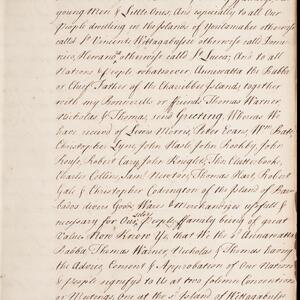 young Men & Little Ones, And especially to all Our
People dwelling in the Islands of Youlomaker otherwise
calld St. Vincents Wittagabusice otherwise calld Domi-
nico, Herano otherwise calld St. Lucea; And to all
Nations & People whatsoever Annawatta the Babba
or Chief Father of the Charibber Islands together
with my Honourable friends Thomas Warner
Nicholas & Thomas, send Greeting Whereas We
have received of Lewis Morris, Peter Evans, Wm. Bate
Christopher Lyne, John Hasle, John Roshby, John
Rouse, Robert Cary, John Knight, Jn. Clutterbook,
Charles Collins, Saml. Newton, Thomas Hart, Robert
Gale & Christopher Codrington of the Island of Bar-
bados divers Goods Wares & Merchandizes usefull &
necessary for Our selves & People, & amounting being of great
Value Now Know Ye, that We the sd. Annawatta
Babba Thomas Warner, Nicholas & Thomas having
the Advice, Consent & Approbation of Our Nations
& People signifyd to Us at two solemn Conventions
or Meetings, One at the sd. Island of Wittagabusice